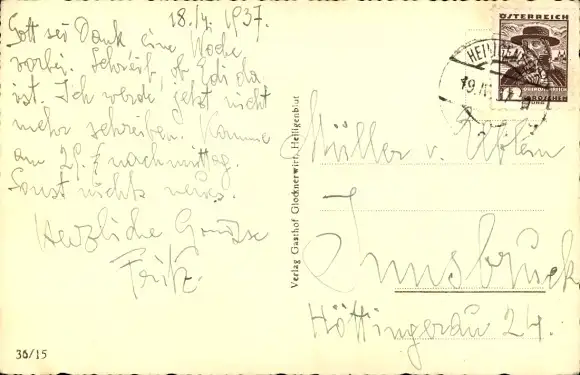 18./4. 1937.
Gott sei Dank eine Woche
vorbei. Schreib, ob Edi da
ist. Ich werde jetzt nicht
mehr schreiben. Komme
am 29. nachmittag.
Sonst nichts neues.
Herzliche Grüsse
Fritz.
36/15
Verlag Gasthof Glocknerwirt, Heiligenblut
ÖSTERREICH
HEILIGENBLUT
19.IV
12
Müller v.
Innsbruck
Höttingerau 24.